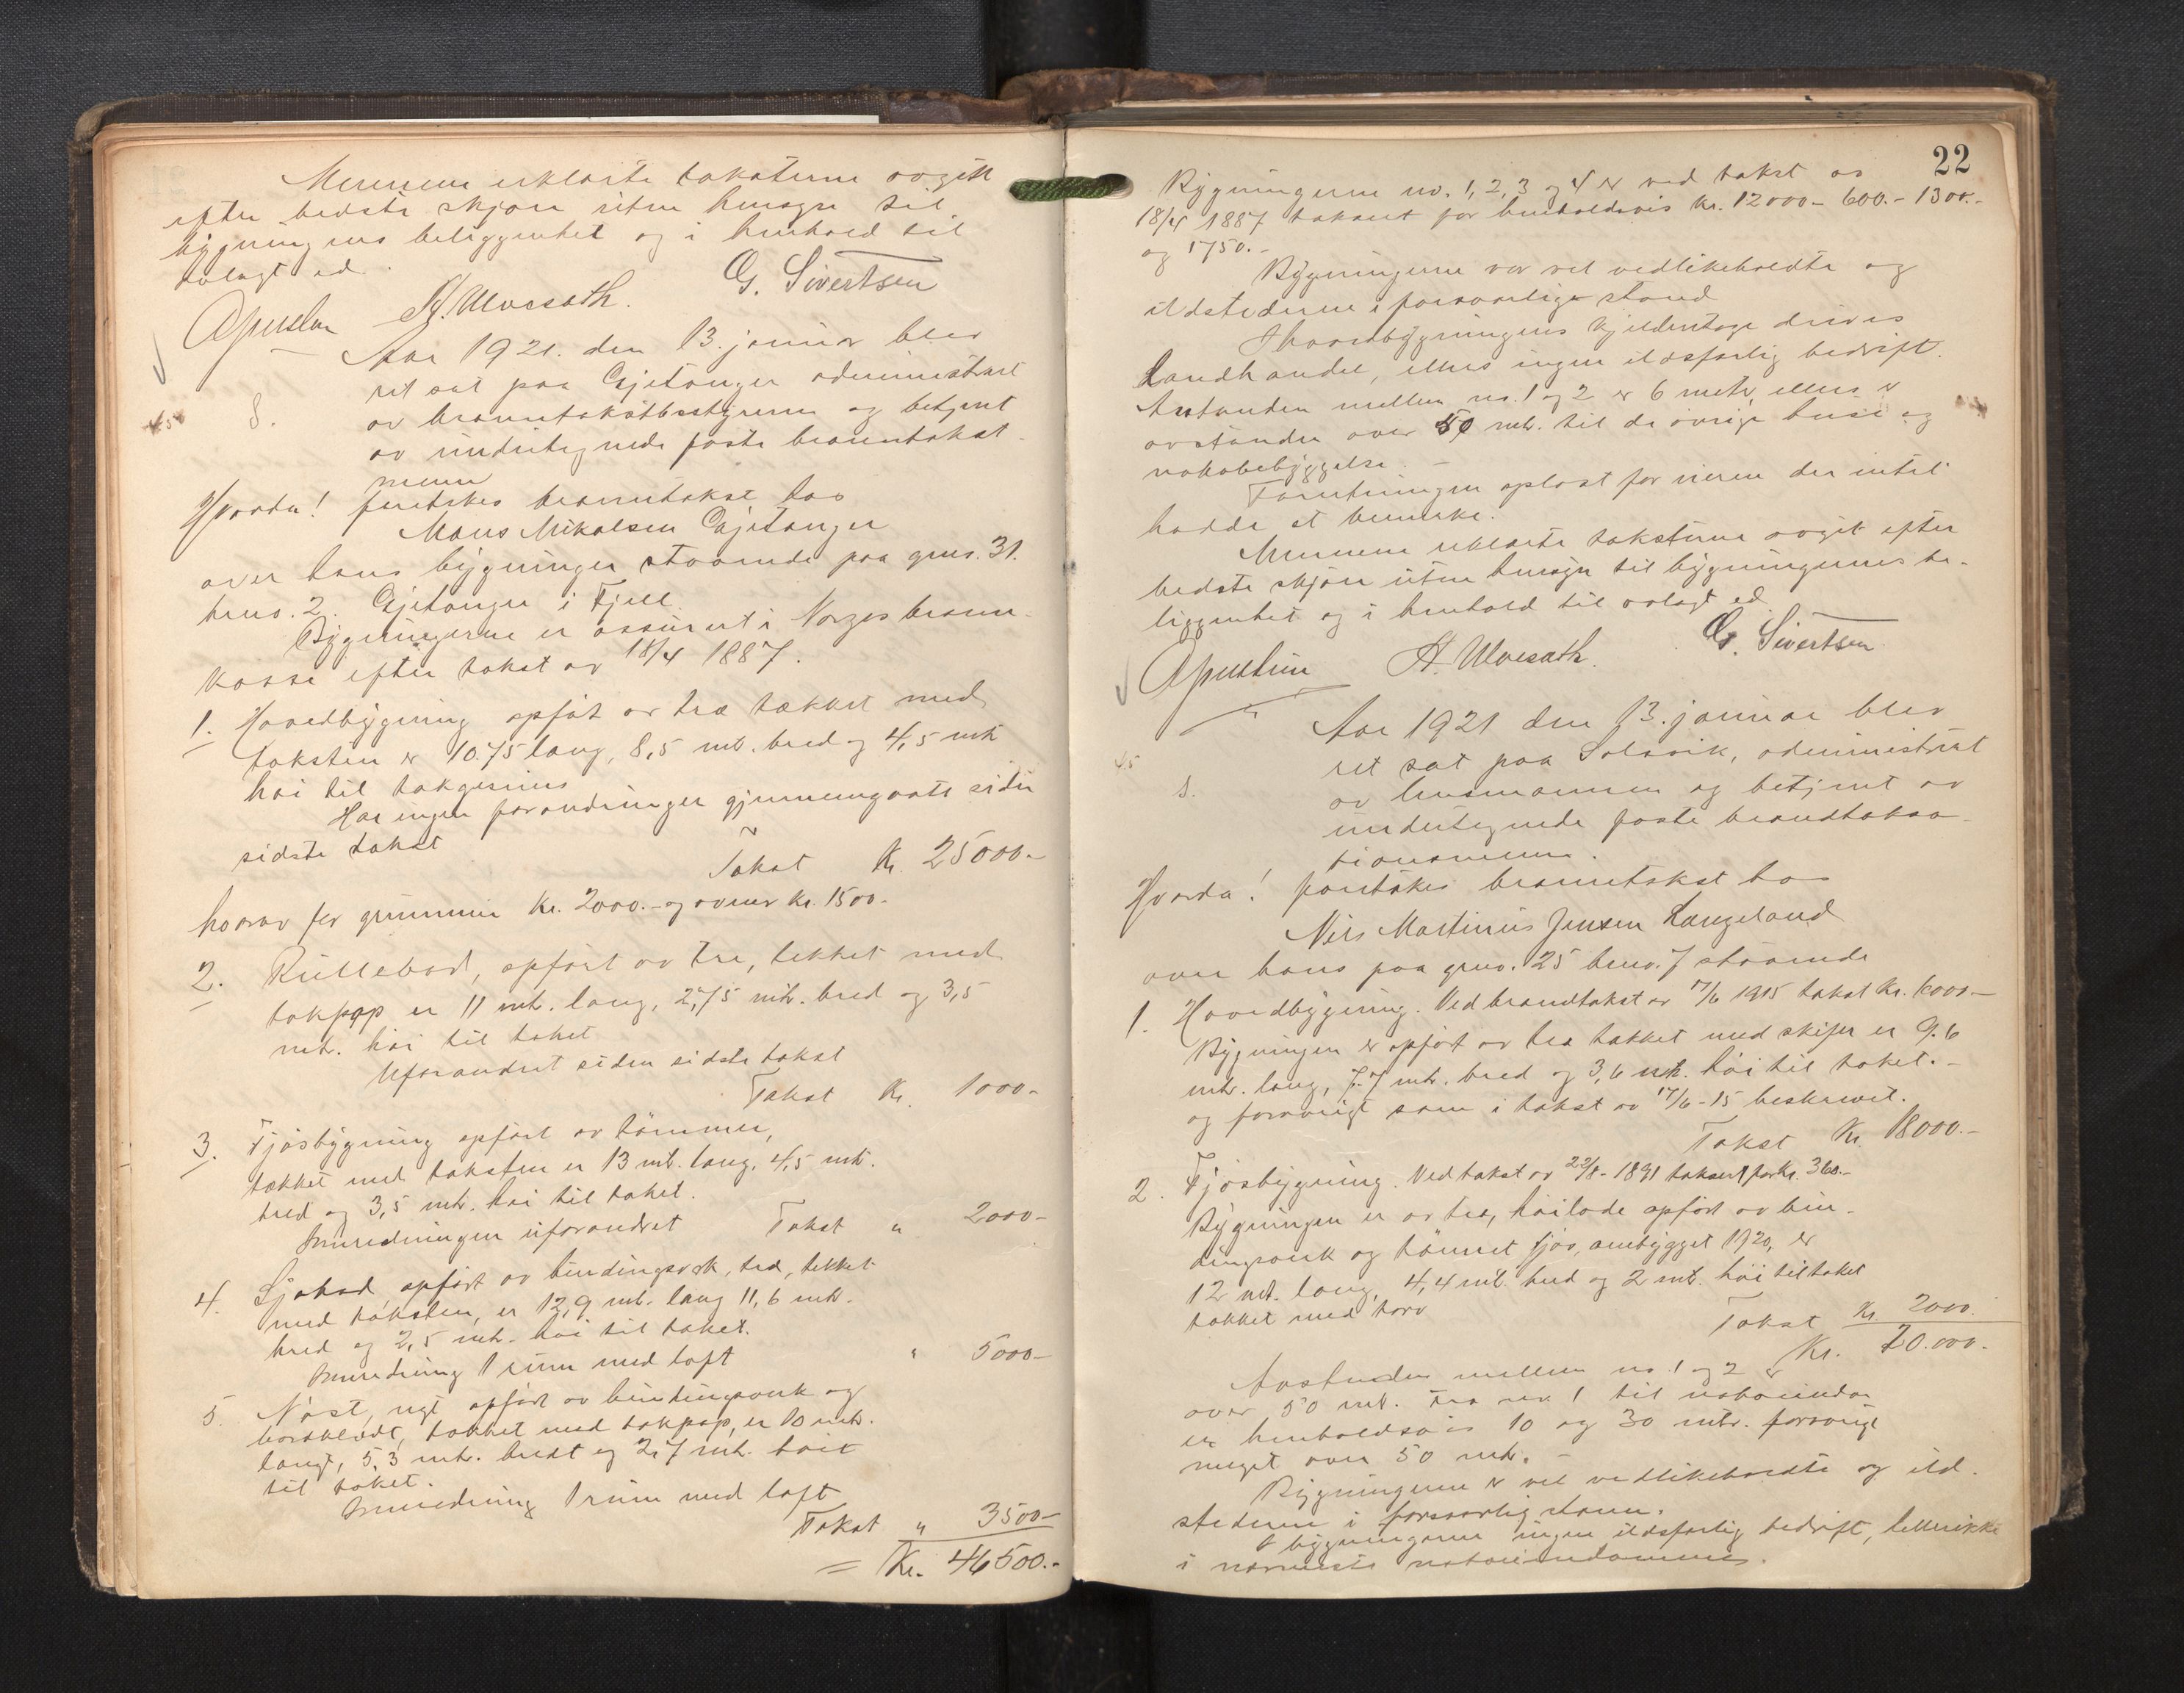 Mennene erklærte taksterne avgitt
efter bedste skjøn uten hensyn til
bygningens beliggenhet og i henhold til
avlagt ed.
A. Ulvesæth. G. Sivertsen
Aar 1921. den 13. januar blev
ret sat paa Gjetanger administreret
av branntakstbestyreren og betjent
av undertegnede faste branntakst-
menn
Hvorda! foretokes branntakst hos
Mons Mikalsen Gjetanger
over hans bygninger staaende paa gnr. 31.
bruno. 2. Gjetanger i Fjell.
Bygningerne er assurert i Norges brann-
kasse efter takst av 18/4 1887.
1. Hovedbygning opført av træ tækket med
taksten er 10.75 lang, 8,5 mtr. bred og 4,5 mtr
høi til takgesims
Har ingen forandringer gjennemgaatt siden
sidste takst
Takst Kr. 25000.-
hvorav for grunnmur Kr. 2000.- og ovner Kr. 1500.-
2. Rullebod, opført av tre, tekket med
takpap er 11 mtr. lang, 2,75 mtr. bred og 3,5
mtr. høi til taket
Uforandret siden sidste takst
Takst Kr. 1000-
3. Fjøsbygning opført av tømmer,
tækket med taksten er 13 mtr. lang, 4,5 mtr.
bred og 3,5 mtr. høi til taket.
Innredningen uforandret Takst " 2000-
4. Sjøbod opført av bindingsverk, træ, tekket
med taksten, er 12,9 mtr. lang 11,6 mtr.
bred og 2,5 mtr. høi til taket.
Innredning 1 rum med loft " 5000-
5. Nøst, nyt opført av bindingsverk og
bordklædt, tækket med takpap, er 10 mtr.
langt, 5,3 mtr. bredt og 2,7 mtr. høit
til taket.
Innredning 1 rum med loft
Takst " 3500-
= Kr. 46500.-
22
Bygningerne no. 1, 2, 3 og 4 er ved takst av
18/4 1887 taksert for henholdsvis Kr. 12000- 600.- 1300.-
og 1750.-
Bygningerne var vel vedlikeholdte og
ildstederne i forsvarlige stand
I hovedbygningens kjelderetage drives
Landhandel, ellers ingen ildsfarlig bedrift.
Avstanden mellem no. 1 og 2 er 6 meter, ellers er
avstanden over 50 mtr. til de øvrige huse og
nabobebyggelse.-
Forretningen oplæst for eieren der intet
hadde at bemerke.
Mennene erklærte taksterne avgit efter
bedste skjøn uten hensyn til bygningernes be-
liggenhet og i henhold til avlagt ed
A. Ulvesæth. G. Sivertsen
Aar 1921 den 13. januar blev
ret sat paa Solsvik, administrert
av lensmannen og betjent av
undertegnede faste brandtaksa-
tionsmenn.
Hvorda! foretokes branntakst hos
Nils Martinus Jensen Langeland
over hans paa gnro. 25 bruno. 7 staaende
1. Hovedbygning. Ved brandtakst av 17/6 1915 takst Kr. 6000-
Bygningen er opført av træ tækket med skifer er 9.6
mtr. lang, 7.7 mtr. bred og 3,6 mtr. høi til taket.-
og forøvrigt som i takst av 17/6-15 beskrevet.
Takst Kr. 18000.-
2. Fjøsbygning. Ved takst av 22/8-1891 taksert for Kr. 360.-
Bygningen er av træ, høilade opført av bin-
dingsverk og tømret fjøs, ombygget 1920, er
12 mtr. lang, 4,4 mtr. bred og 2 mtr. høi til taket
tækket med torv
Takst Kr 2000.
Kr. 20.000.-
Avstanden mellem no. 1 og 2 er
over 50 mtr. Fra no. 1 til naboeiendom
er henholdsvis 10 og 30 mtr. forøvrigt
meget over 50 mtr.-
Bygningerne er vel vedlikeholdte og ild-
stederne i forsvarlig stann.
I bygningerne ingen ildsfarlig bedrift, hellerikke
i nærmeste naboeiendommer.